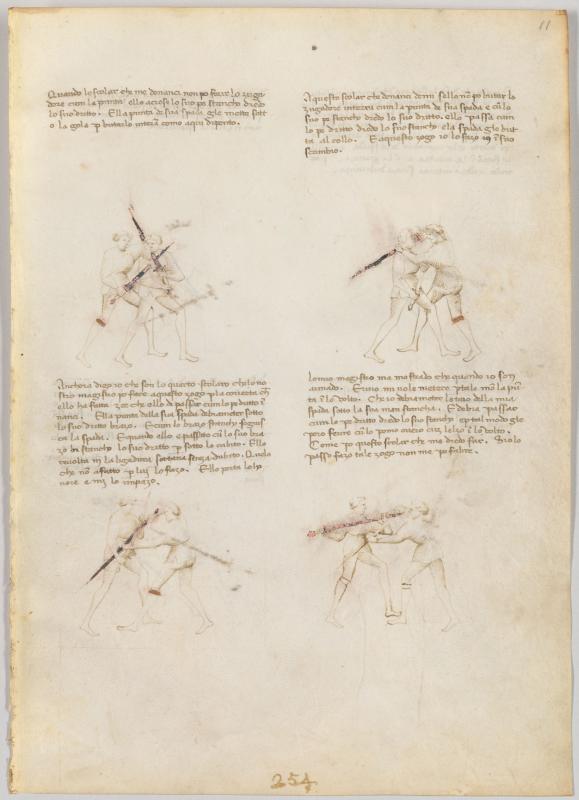 11
Quando lo scolar che me denanci non po ferir lo zuga
dore cum la punta ello acresse lo suo pe stancho dredo
lo suo dritto. E la punta de sua spada gle mette sott
o la gola p butarlo in terra como aqui depento.
A questo scolar che denanci de mi sello nō po butar lo
zugadore in terra cum la punta de sua spada e cū lo
suo pe stancho dredo lo suo dritto. ello passa cum
lo pe dritto dredo lo suo stancho e la spada gle but
ta al collo. E aquesto zogo io lo fazo in suo
scambio.
Anchora digo io che son lo quarto scolaro che lo no
stro magistro po fare aquesto zogo p la coverta ch̄
ello ha fatta zoe che ello di passar cum lo pe dritto ī
nanci. E la punta della sua spada de metter sotto
lo suo dritto brazo. E cum lo brazo stancho
la spada. E quando ello e passato cū lo suo bra
zo stancho lo suo dritto p sotto lo cubito. Ello
revolta in la ligadura sottana senza dubito. Quelo
che nō a fatto p lui lo fazo. Ello porta lo ho
nore e mi lo impazo.
lo mio magistro ma mostrado che quando io son
Che io de metter lo taio della mia
spada sotto la sua man stancha. E debia passar
cum lo pe dritto dredo lo suo stancho
pero ferire cū lo pomo overo cū lelzo ī lo volto.
Come po questo scolar che me dredo far. Si io lo
passo fazo tale zogo non me po falire.
254